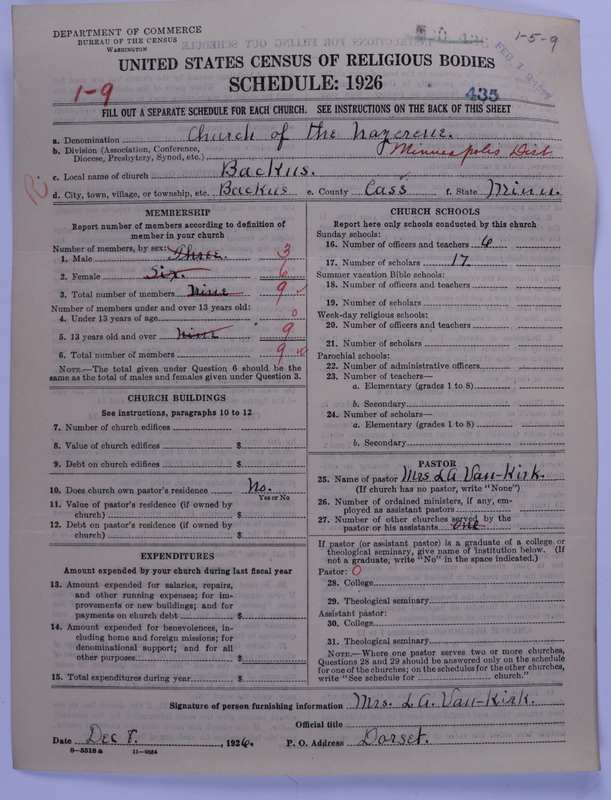 DEPARTMENT OF COMMERCE
BUREAU OF THE CENSUS
WASHINGTON
1-5-9
UNITED STATES CENSUS OF RELIGIOUS BODIES
SCHEDULE: 1926
1-9
435
FILL OUT A SEPARATE SCHEDULE FOR EACH CHURCH. SEE INSTRUCTIONS ON THE BACK OF THIS SHEET
a. Denomination Church of the Nazerene.
b. Division (Association, Conference, Diocese, Presbytery, Synod, etc.) Minneapolis Dist
c. Local name of church Backus.
d. City, town, village, or township, etc. Backus e. County Cass f. State Minn.
MEMBERSHIP
Report number of members according to definition of member in your church
Number of members, by sex:
1. Male Three. 3
2. Female Six. 6
3. Total number of members Nine 9
Number of members under and over 13 years old:
4. Under 13 years of age 0
5. 13 years old and over Nine 9
6. Total number of members 9
NOTE.—The total given under Question 6 should be the same as the total of males and females given under Question 3.
CHURCH BUILDINGS
See instructions, paragraphs 10 to 12
7. Number of church edifices
8. Value of church edifices $
9. Debt on church edifices $
10. Does church own pastor's residence No.
Yes or No
11. Value of pastor's residence (if owned by church) $
12. Debt on pastor's residence (if owned by church) $
EXPENDITURES
Amount expended by your church during last fiscal year
13. Amount expended for salaries, repairs, and other running expenses; for improvements or new buildings; and for payments on church debt $
14. Amount expended for benevolences, including home and foreign missions; for denominational support; and for all other purposes $
15. Total expenditures during year $
CHURCH SCHOOLS
Report here only schools conducted by this church
Sunday schools:
16. Number of officers and teachers 6
17. Number of scholars 17
Summer vacation Bible schools:
18. Number of officers and teachers
19. Number of scholars
Week-day religious schools:
20. Number of officers and teachers
21. Number of scholars
Parochial schools:
22. Number of administrative officers
23. Number of teachers—
a. Elementary (grades 1 to 8)
b. Secondary
24. Number of scholars—
a. Elementary (grades 1 to 8)
b. Secondary
PASTOR
25. Name of pastor Mrs L.A. Van-Kirk.
(If church has no pastor, write "None")
26. Number of ordained ministers, if any, employed as assistant pastors
27. Number of other churches served by the pastor or his assistants one
If pastor (or assistant pastor) is a graduate of a college or theological seminary, give name of institution below. (If not a graduate, write "No" in the space indicated.)
Pastor: 0
28. College
29. Theological seminary
Assistant pastor:
30. College
31. Theological seminary
NOTE.—Where one pastor serves two or more churches, Questions 28 and 29 should be answered only on the schedule for one of the churches; on the schedules for the other churches, write "See schedule for church."
Signature of person furnishing information Mrs. L.A. Van-Kirk.
Official title
Date Dec 8., 1926. P. O. Address Dorset.
8—5518 a 11—9054